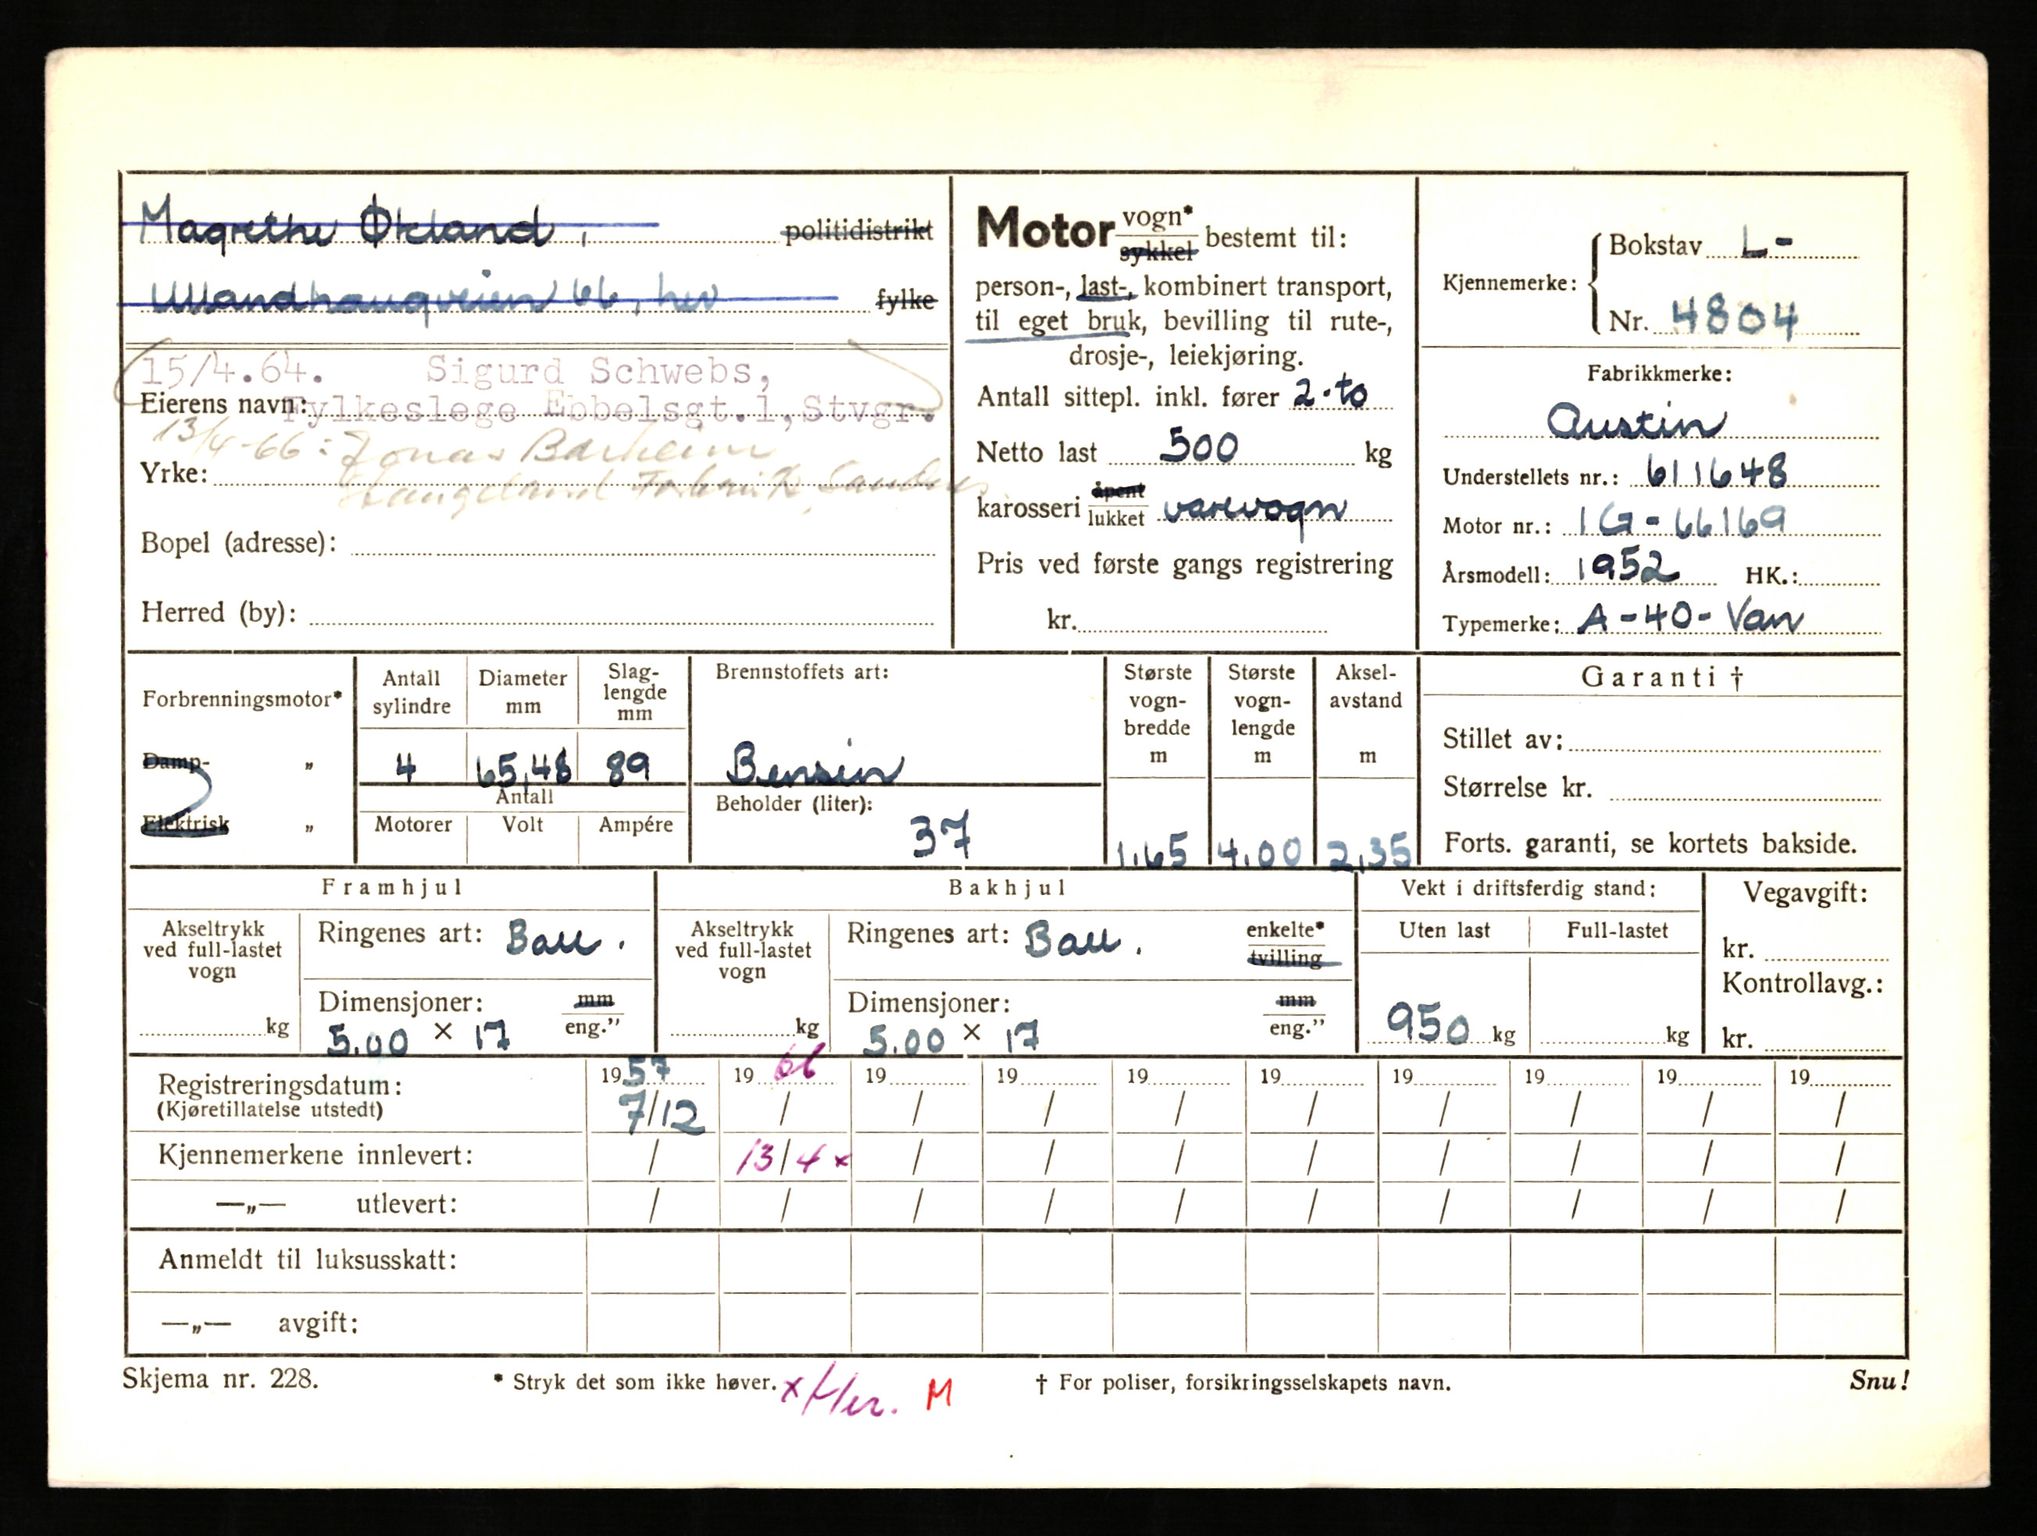 Magrethe Økland, politidistrikt
Ullandhaugveien 66, her fylke
15/4.64. Sigurd Schwebs,
Eierens navn: Fylkeslege Ebbelsgt.1, Stvgr.
13/4-66: Jonas
Yrke:
Bopel (adresse):
Herred (by):
Motor vogn* sykkel bestemt til:
person-, last-, kombinert transport,
til eget bruk, bevilling til rute-,
drosje-, leiekjøring.
Antall sittepl. inkl. fører 2-to
Netto last 500 kg
karosseri åpent lukket varevogn
Pris ved første gangs registrering
kr.
Kjennemerke: Bokstav L-
Nr. 4804
Fabrikkmerke:
Austin
Understellets nr.: 611648
Motor nr.: 1G-66169
Årsmodell: 1952 HK.:
Typemerke: A-40-Van
Forbrenningsmotor*
Damp- „
Elektrisk „
Antall sylindre Diameter mm Slag-lengde mm
4 65,48 89
Antall
Motorer Volt Ampére
Brennstoffets art:
Bensin
Beholder (liter):
37
Største vogn-bredde m
1.65
Største vogn-lengde m
4.00
Aksel-avstand m
2,35
Garanti †
Stillet av:
Størrelse kr.
Forts. garanti, se kortets bakside.
Framhjul
Akseltrykk ved full-lastet vogn
kg
Ringenes art: Ball.
Dimensjoner: mm
5.00 × 17 eng."
Bakhjul
Akseltrykk ved full-lastet vogn
kg
Ringenes art: Ball. enkelte* tvilling
Dimensjoner: mm
5.00 × 17 eng."
Vekt i driftsferdig stand:
Uten last Full-lastet
950 kg kg
Vegavgift:
kr.
Kontrollavg.:
kr.
Registreringsdatum: 1957 1966 19 19 19 19 19 19 19 19
(Kjøretillatelse utstedt) 7/12 / / / / / / / / /
Kjennemerkene innlevert: / 13/4 x / / / / / / / /
—„— utlevert: / / / / / / / / / /
Anmeldt til luksusskatt:
—„— avgift:
Skjema nr. 228. * Stryk det som ikke høver. x M † For poliser, forsikringsselskapets navn. Snu!